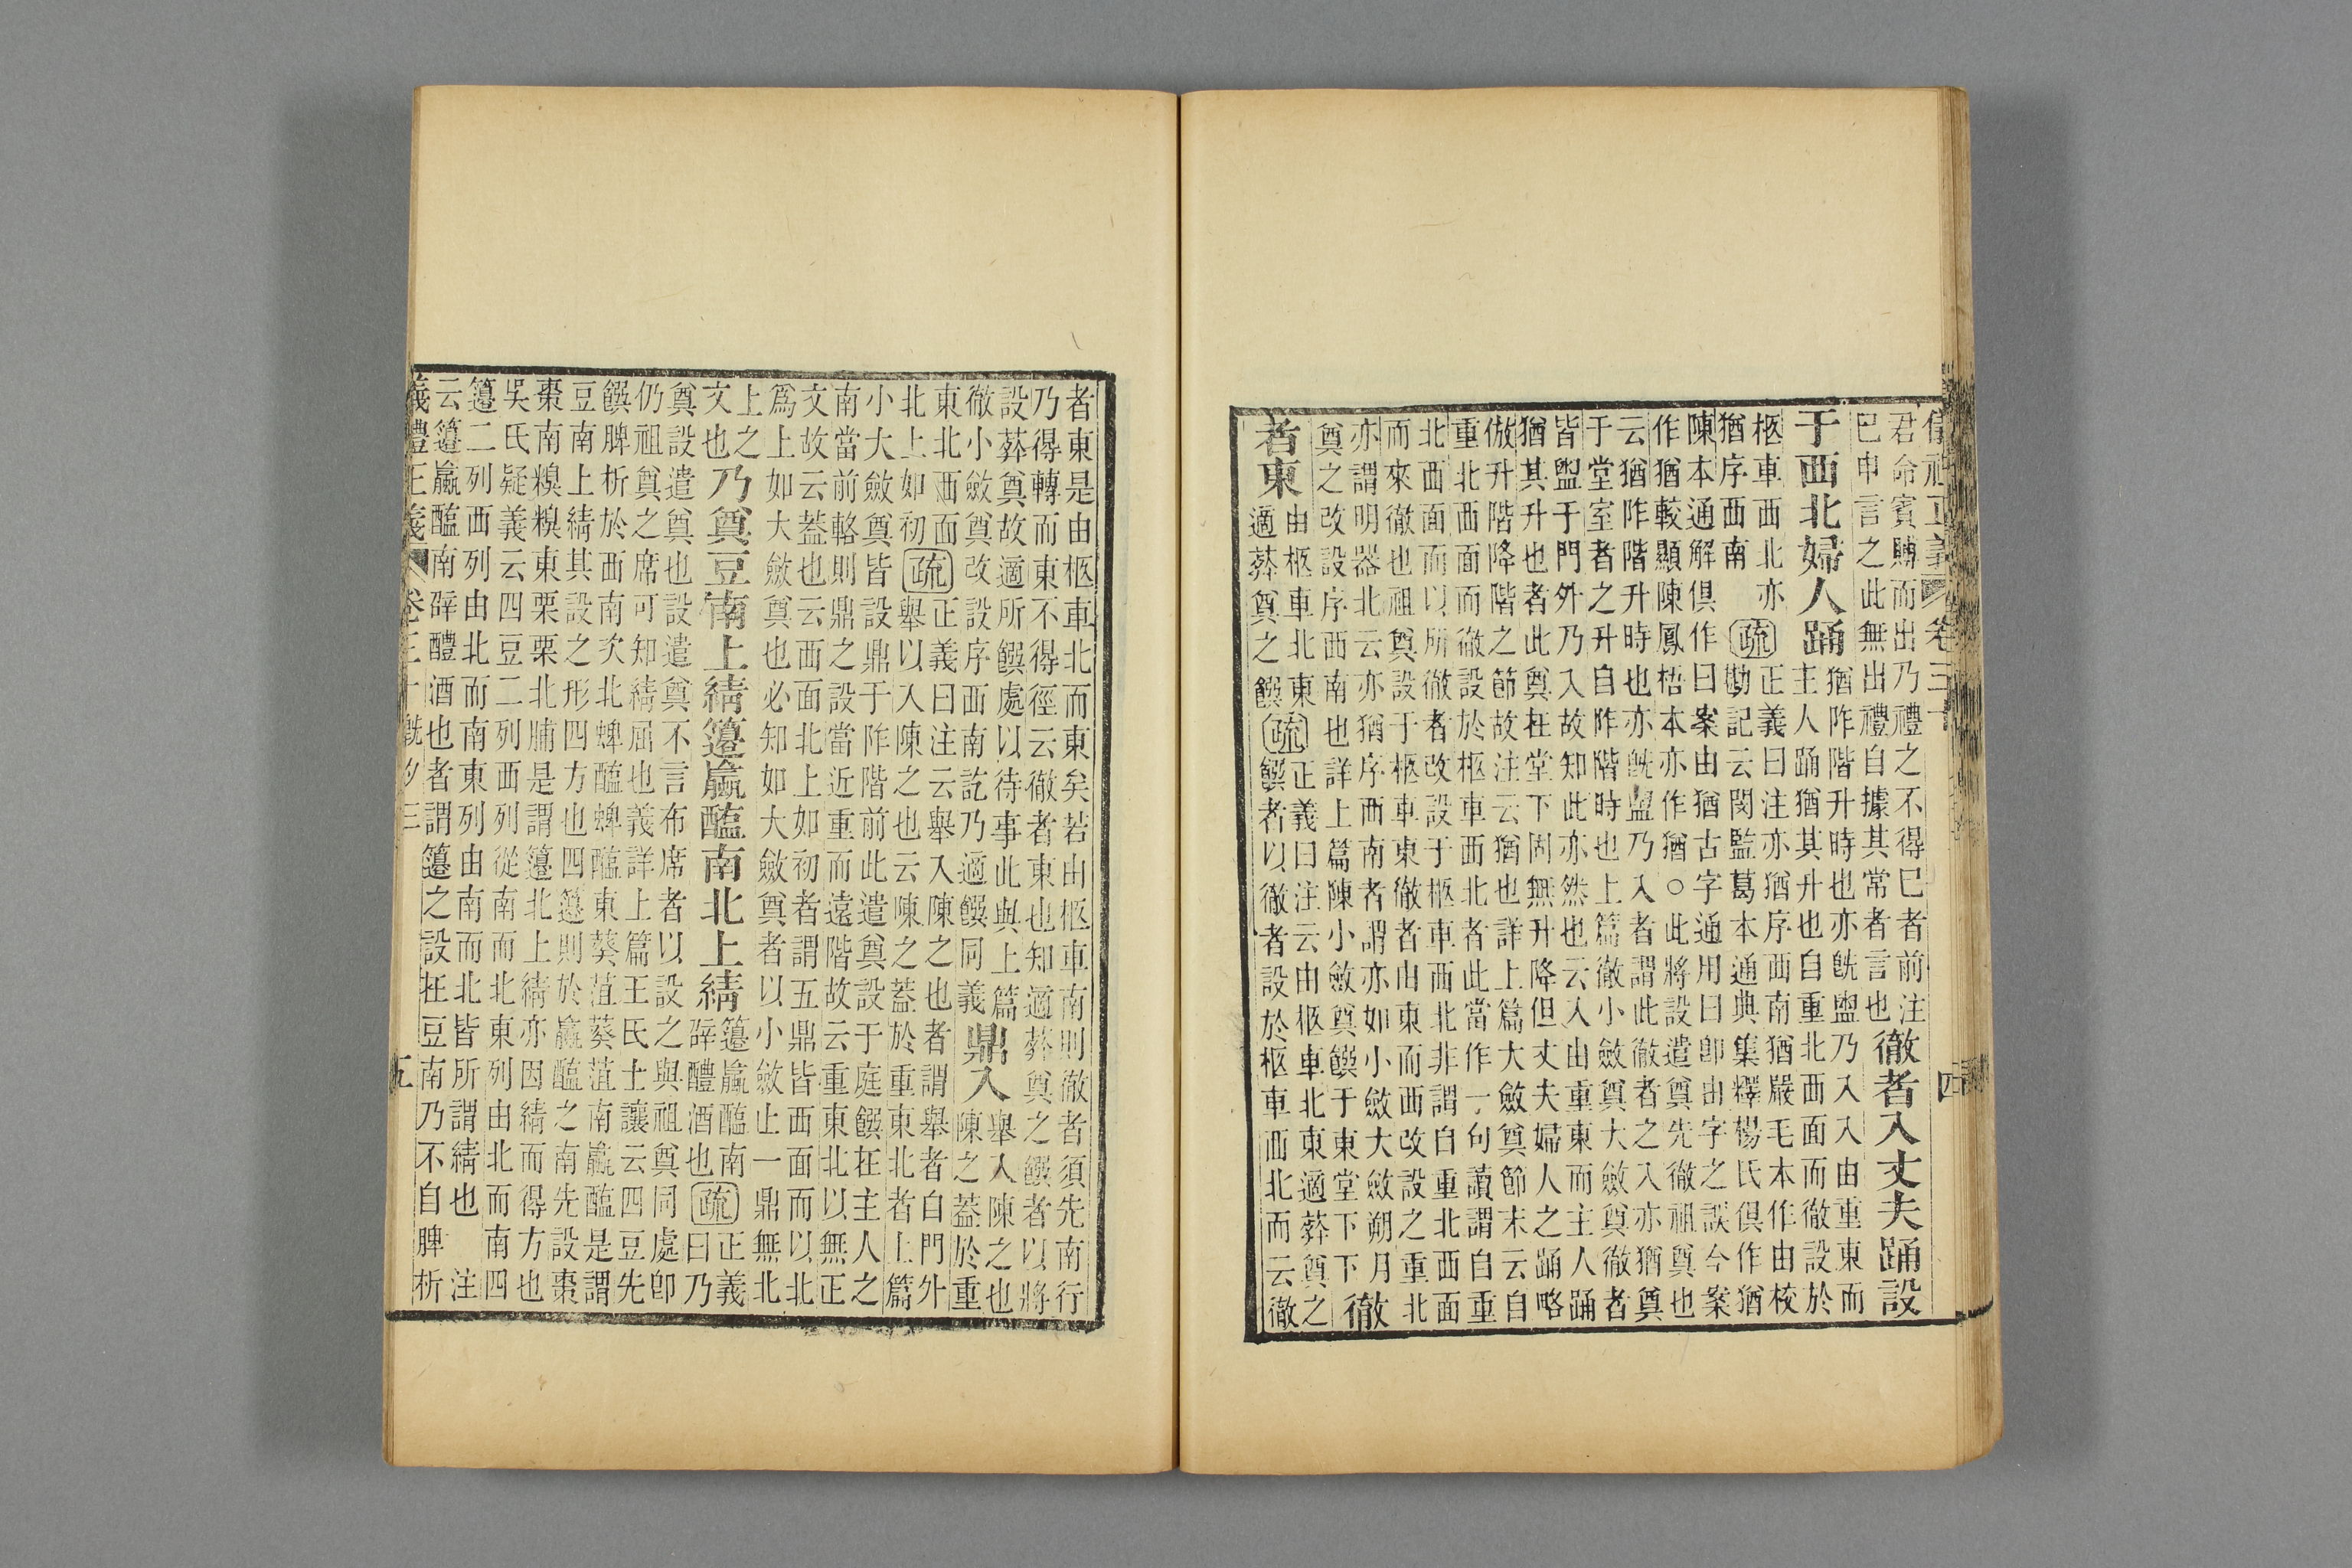 儀禮正義 卷三十 四
君命賓賵而出乃禮之不得已者前注
已申言之此無出禮自據其常者言也徹者入丈夫踊設
于西北婦人踊猶阼階升時也亦旣盥乃入入由重東而
主人踊猶其升也自重北西面而徹設於
柩車西北亦
猶序西南疏正義曰注亦猶序西南猶嚴毛本作由校
勘記云閔監葛本通典集釋楊氏俱作猶
陳本通解俱作曰案由猶古字通用曰卽由字之誤今案
作猶較顯陳鳳梧本亦作猶○此將設遣奠先徹祖奠也
云猶阼階升時也亦旣盥乃入者謂此徹者之入亦猶奠
于堂室者之升自阼階時也上篇徹小斂奠大斂奠徹者
皆盥于門外乃入故知此亦然也云入由重東而主人踊
猶其升也者此奠在堂下固無升降但丈夫婦人之踊略
倣升階降階之節故注云猶也詳上篇大斂奠節末云自
重北西面而徹設於柩車西北者此當作一句讀謂自重
北西面而以所徹者改設于柩車西北非謂自重北西面
而來徹也祖奠設于柩車東徹者由東而西改設之重北
亦謂明器北云亦猶序西南者謂亦如小斂大斂朔月
奠之改設序西南也詳上篇陳小斂奠饌于東堂下下徹
者東由柩車北東適葬奠之饌疏正義曰注云由柩車北東適葬奠之
饌者以徹者設於柩車西北而云徹
者東是由柩車北而東矣若由柩車南則徹者須先南行
乃得轉而東不得徑云徹者東也知適葬奠之饌者以將
設葬奠故適所饌處以待事此與上篇
徹小斂奠改設序西南訖乃適饌同義鼎入舉入陳之也
陳之蓋於重
東北西面
北上如初疏正義曰注云舉入陳之也者謂舉者自門外
舉以入陳之也云陳之蓋於重東北者上篇
小大斂奠皆設鼎于阼階前此遣奠設于庭饌在主人之
南當前輅則鼎之設當近重而遠階故云重東北以無正
文故云蓋也云西面北上如初者謂五鼎皆西面而以北
爲上如大斂奠也必知如大斂奠者以小斂止一鼎無北
上之
文也乃奠豆南上綪籩蠃醢南北上綪籩蠃醢南
辟醴酒也疏正義
曰乃
奠設遣奠也設遣奠不言布席者以設之與祖奠同處卽
仍祖奠之席可知綪屈也義詳上篇王氏士讓云四豆先
饌脾析於西南次北蜱醢蜱醢東葵菹葵菹南蠃醢是謂
豆南上綪其設之形四方也四籩則於蠃醢之南先設棗
棗南糗糗東栗栗北脯是謂籩北上綪亦因綪而得方也
吳氏疑義云四豆二列西列從南而北東列由北而南四
籩二列西列由北而南東列由南而北皆所謂綪也注
云籩蠃醢南辟醴酒也者謂籩之設在豆南乃不自脾析
儀禮正義 卷三十 旣夕三 五